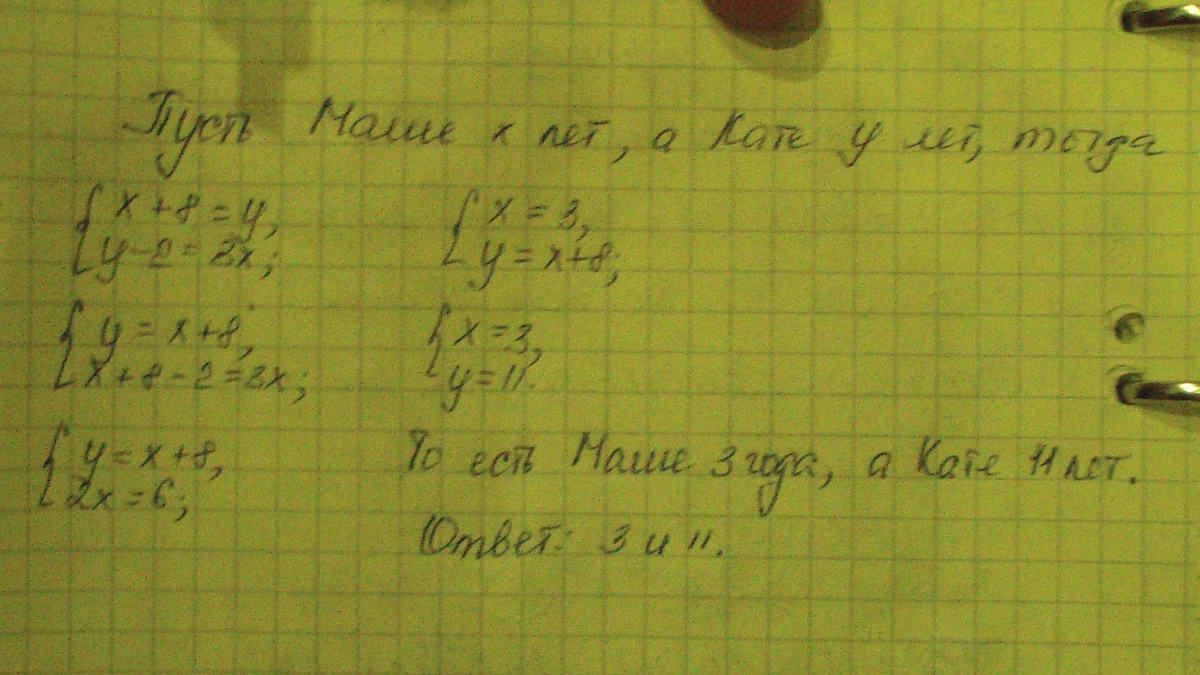 Пусть Маше x лет, а Кате y лет, тогда
{ x + 8 = y,
y - 2 = 3x;
{ y = x + 8,
x + 8 - 2 = 3x;
{ y = x + 8,
2x = 6;
{ x = 3,
y = x + 8;
{ x = 3,
y = 11.
То есть Маше 3 года, а Кате 11 лет.
Ответ: 3 и 11.